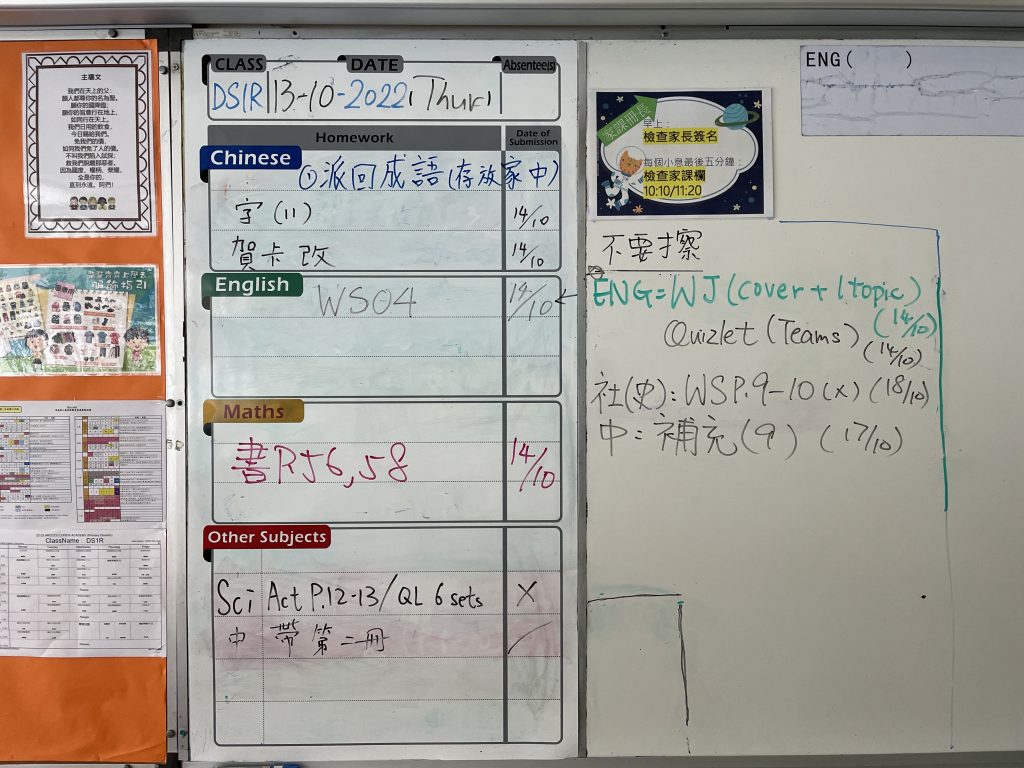 主禱文
我們在天上的父:
願人都尊你的名為聖。
願你的國降臨;
願你的旨意行在地上,
如同行在天上。
我們日用的飲食,
今日賜給我們。
免我們的債,
如同我們免了人的債。
不叫我們陷入試探;
救我們脫離那惡者。
因為國度、權柄、榮耀,
全是你的,
直到永遠。阿們!
服飾指引
ClassName : DS1R
CLASS DATE Absentee(s)
DS1R 13-10-2022 (Thur)
Homework Date of Submission
Chinese
①派回成語(存放家中)
字(11) 14/10
賀卡改 14/10
English
WS04 14/10
Maths
書P.56,58 14/10
Other Subjects
Sci Act P.12-13/QL 6 sets X
中 帶第二冊
ENG( )
家課冊長
早上:
檢查家長簽名
每個小息最後五分鐘:
檢查家課欄
10:10/11:20
不要擦
ENG=WJ(cover+1topic)
(14/10)
Quizlet(Teams)
(14/10)
社(史):WSP.9-10(x)(18/10)
中:補充(9) (17/10)